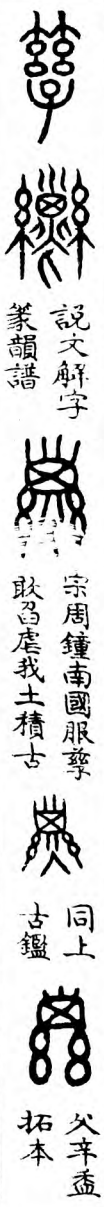 孳
說文解字
篆韻譜
宗周鐘南國服孳
敢臽虐我土積古
同上
古鑑
父辛盉
拓本